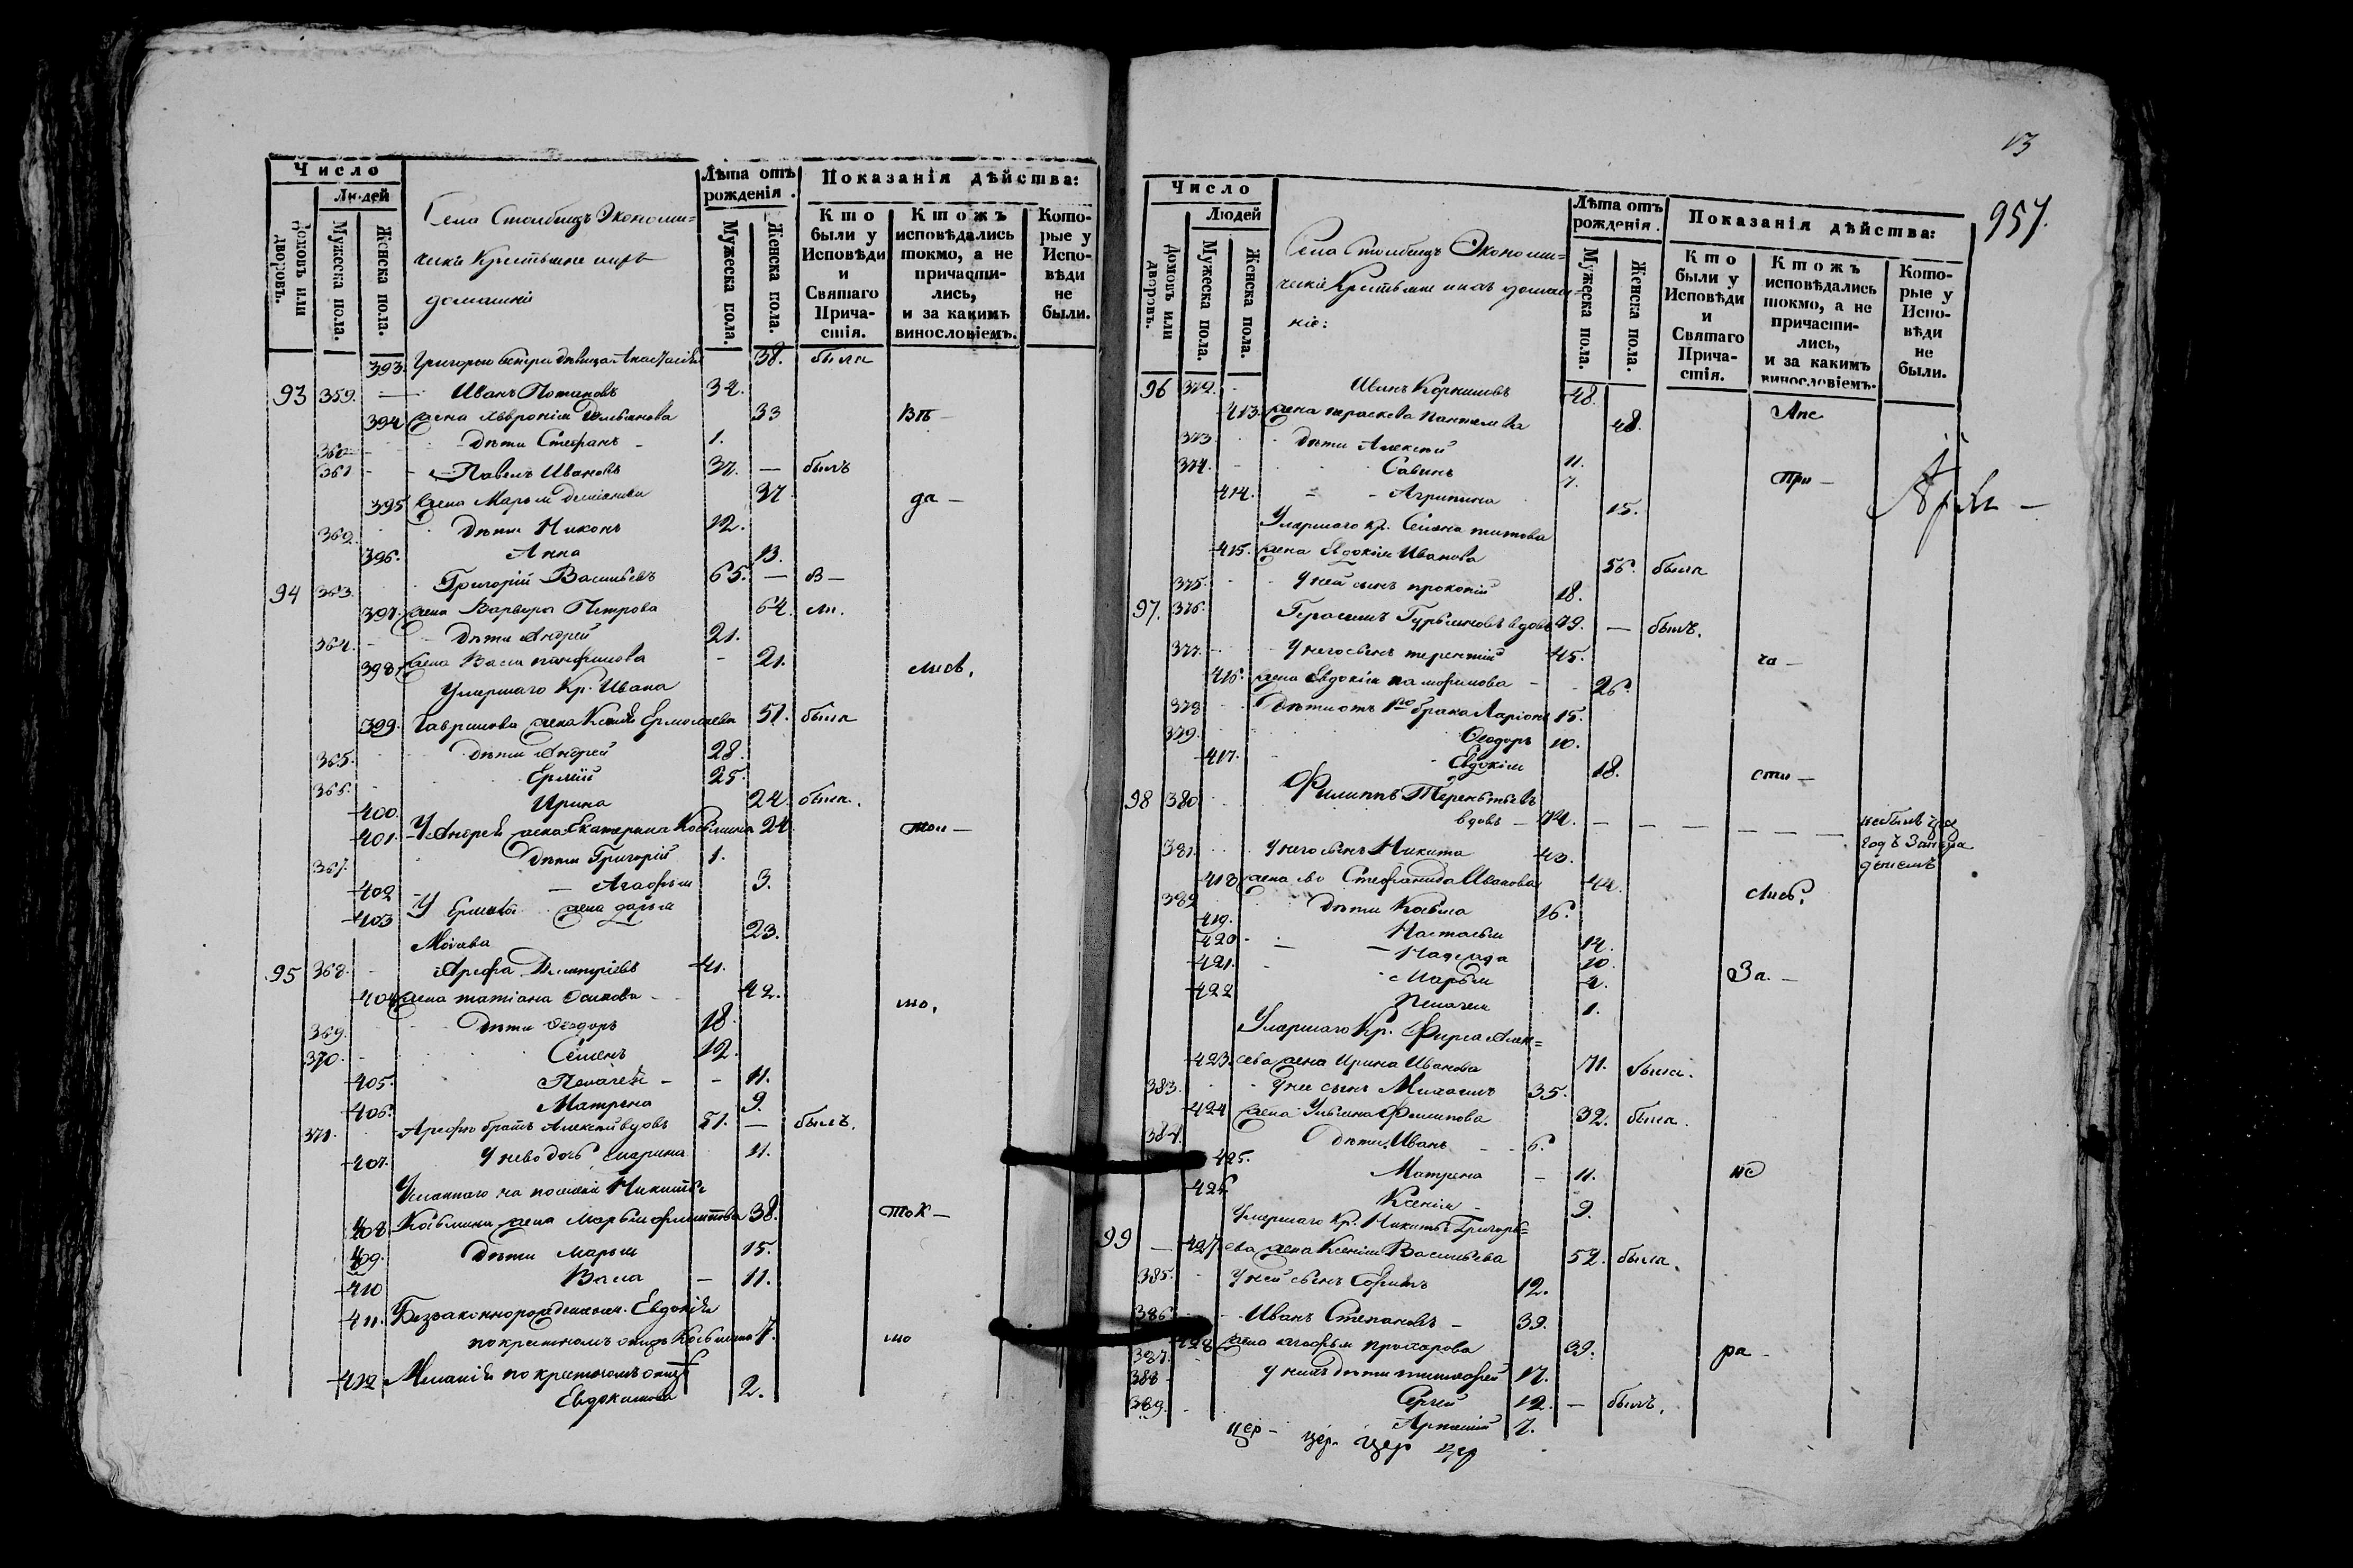 Число
Людей
Домовъ или дворовъ.
Мужеска пола.
Женска пола.
Села Столбищъ Экономи=
ческіе Крестьяне ихъ
домашніе
Лѣта отъ рожденія.
Мужеска пола.
Женска пола.
Показанія дѣйства:
Кто были у Исповѣди и Святаго Причастія.
Ктожъ исповѣдались токмо, а не причастились, и за какимъ винословіемъ.
Которые у Исповѣди не были.
393. Григорью сестра дѣвица Анастасія 38. была
93 359. Иванъ Потаповъ 34.
394 жена Февронія 33 Въ —
360 дѣти Стефанъ 1.
361 Павелъ Ивановъ 37. — былъ
395 жена Марья 37 да —
362. дѣти Никонъ 12.
396. Анна 13.
94 363. Григорій Васильевъ 65. — в —
397. жена Варвара Петрова 64. ли.
364. дѣти Андрей 21.
398. жена Васса Панфилова — 21. лись,
Умершаго Кр. Ивана
399. Гаврилова жена Ксенія Ермолаева 51. была
365. дѣти Андрей 28.
366. Ермій 25.
400. Ирина 24. была.
401. У Андрея жена Екатерина Козьмина 24. топ —
367. дѣти Григорій 1.
402 — Агафья 3.
403 У Ермія жена Дарья
23.
95 368. Арефа Димитріевъ 41.
404 жена Татіана Осипова 42. мо,
369. дѣти Ѳеодоръ 18.
370. Семенъ 12.
405. Пелагея — 11.
406. Матрена 9.
371. Арефы братъ Алексій вдовъ 51. — былъ.
407. У нево дочь Марина 11.
на поселеніе Никиты
408. Козьмина жена Марья Филиппова 38. ток —
409. дѣти Марья 15.
410 Васса — 11.
411. Беззаконнорожденная Евдокія
по крестномъ отцѣ Козьмина 7. мо
412 Меланія по крестномъ отцѣ
Евдокимова 2.
13
957.
Число
Людей
Домовъ или дворовъ.
Мужеска пола.
Женска пола.
Села Столбищъ Экономи=
ческіе Крестьяне ихъ домаш=
ніе:
Лѣта отъ рожденія.
Мужеска пола.
Женска пола.
Показанія дѣйства:
Кто были у Исповѣди и Святаго Причастія.
Ктожъ исповѣдались токмо, а не причастились, и за какимъ винословіемъ.
Которые у Исповѣди не были.
96 372. Иванъ Корниловъ 48.
413. жена Параскева Пантелева 48. Апе
373. дѣти Алексій 11.
374. Савинъ 7. при —
414. Агрипина 15.
Умершаго кр. Семена Титова
415. жена Евдокія Иванова 56. была
375. У ней сынъ Прокопій 18.
97. 376. Герасимъ Гурьяновъ вдовъ 79. — былъ.
377. У него сынъ Терентій 45. ча —
416. жена Евдокія Памфилова 26.
378 Дѣти отъ 1го брака Ларіонъ 15.
379. Ѳеодоръ 10.
417. Евдокія 18. сти —
98 380. Филиппъ Терентьевъ
вдовъ — 74. — — — — — —
381. У него сынъ Никита 43.
418 жена ево Стефанида Иванова 44. лись,
382 Дѣти Козьма 16.
419. Настасья 14.
420 Надежда 10.
421. Марья 4. За. —
422 Пелагея 1.
Умершаго Кр. Фирса Алек=
423. сева жена Ирина Иванова 71. была.
383. У нее сынъ Михаилъ 35.
424 жена Ульяна Филипова 32. была.
384. дѣти Иванъ 6.
425. Матрена — 11. не
426 Ксенія 9.
Умершаго Кр. Никиты Григорь=
99 — 427 ева жена Ксенія Васильева 52. была.
385. У ней сынъ 12.
386 Иванъ Степановъ — 39.
428 жена Агафья Прохорова 39. ра —
387. У нихъ дѣти Тимофей 17.
388 Сергій 12. — былъ.
389. Артемій 7.
цер — цер. цер цер